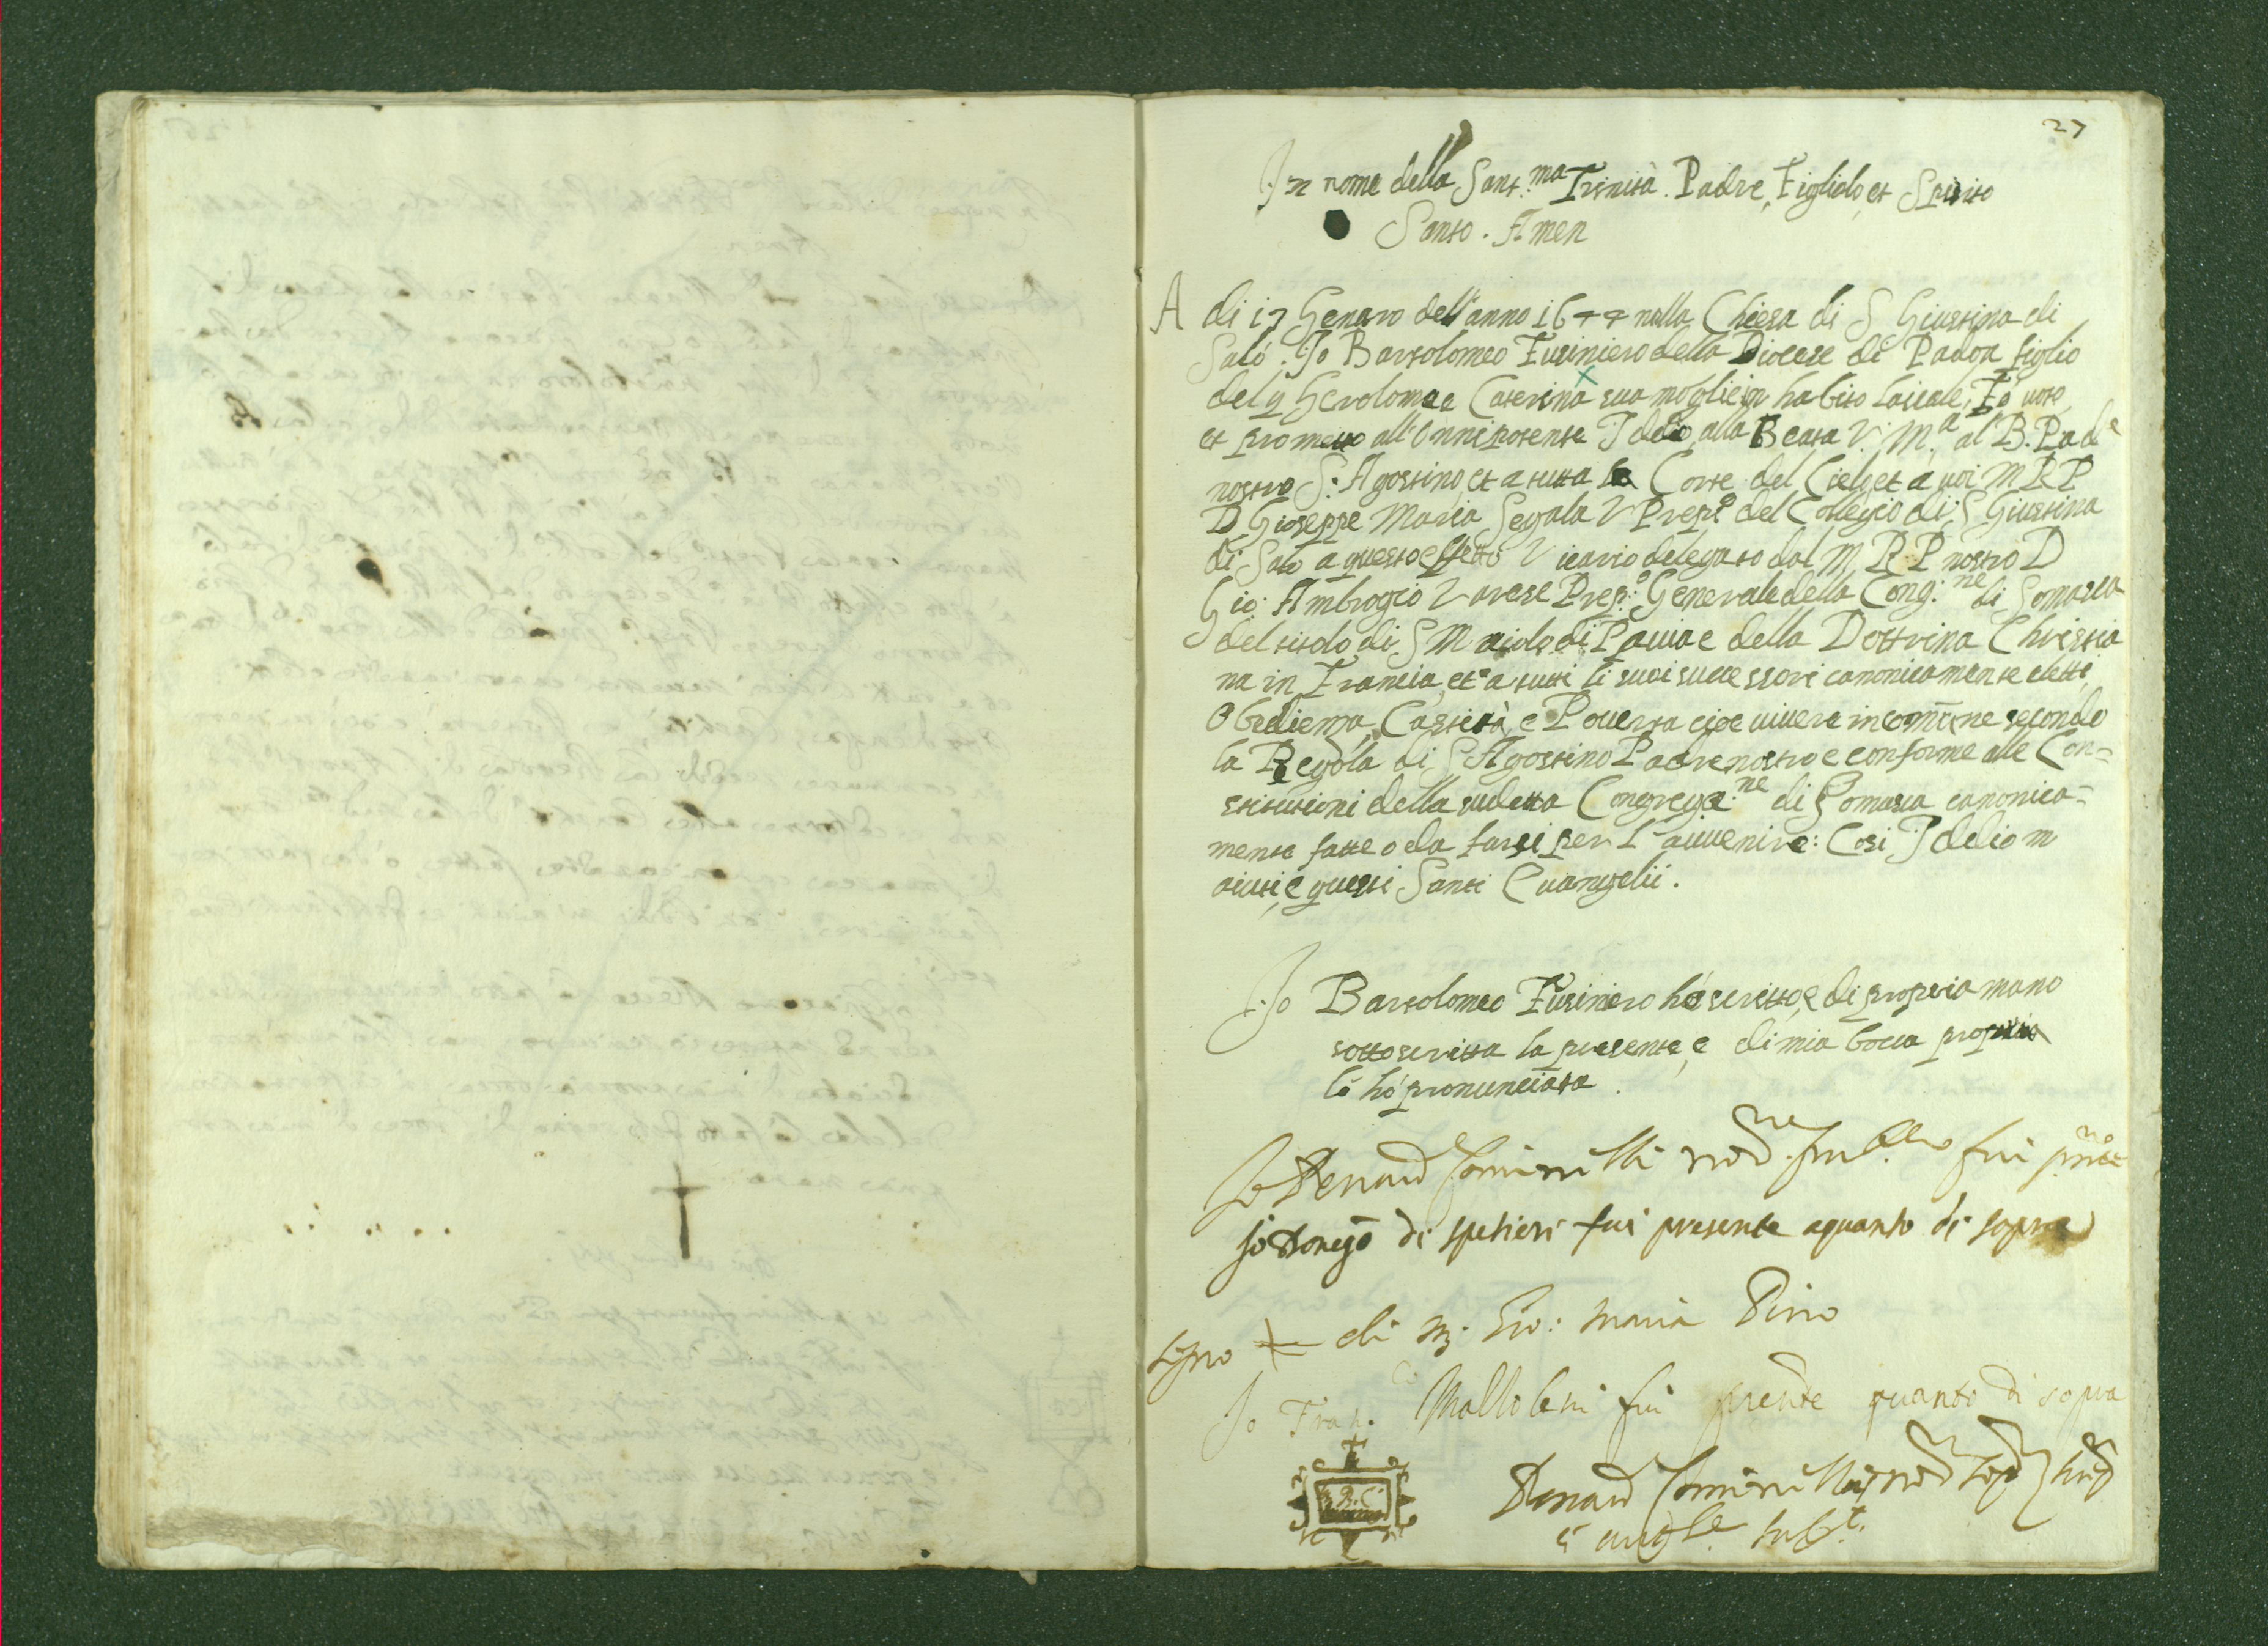 27
In nome della Sant.ma Trinità. Padre, Figliolo, et Spirito
Santo. Amen
A di 17 Genaro dell'anno 1644 nella Chiesa di S Giustina di
Salò. Io Bartolomeo Fusiniero della Diocese di Padoa figlio
del q Gerolomo e Caterina sua moglie in habito laicale, Fò voto
et prometto all'Onnipotente Iddio, alla Beata V. M.a al B. Pad.e
nostro S. Agostino et a tutta la Corte del Cielo, et a voi M R P
D Gioseppe Maria Segala V Prep.o del Collegio di S Giustina
di Salò a questo effetto Vicario delegato dal M R P nostro D
Gio: Ambrogio Varese Prep.o Generale della Cong.ne di Somasca
del titolo di S Maiolo di Pavia e della Dottrina Christia
na in Francia, et a tutti li suoi successori canonicamente eletti,
Obedienza, Castità, e Povertà cioe vivere in comune secondo
la Regola di S Agostino Padre nostro e conforme alle Con=
stitutioni della sudetta Congrega.ne di Somasca canonica=
mente fatte o da farsi per l'avvenire: Cosi Iddio m
aiuti, e questi Santi Evangelii.
Io Bartolomeo Fusiniero hò scritto, e di propria mano
sottoscritta la presente, e di mia bocca propria
la hò pronunciata.
Io fui
Io di spetieri fui presente a quanto di sopra
Segno + di m. Gio: Maria Pino
Io Fran.co fui presente quanto di sopra